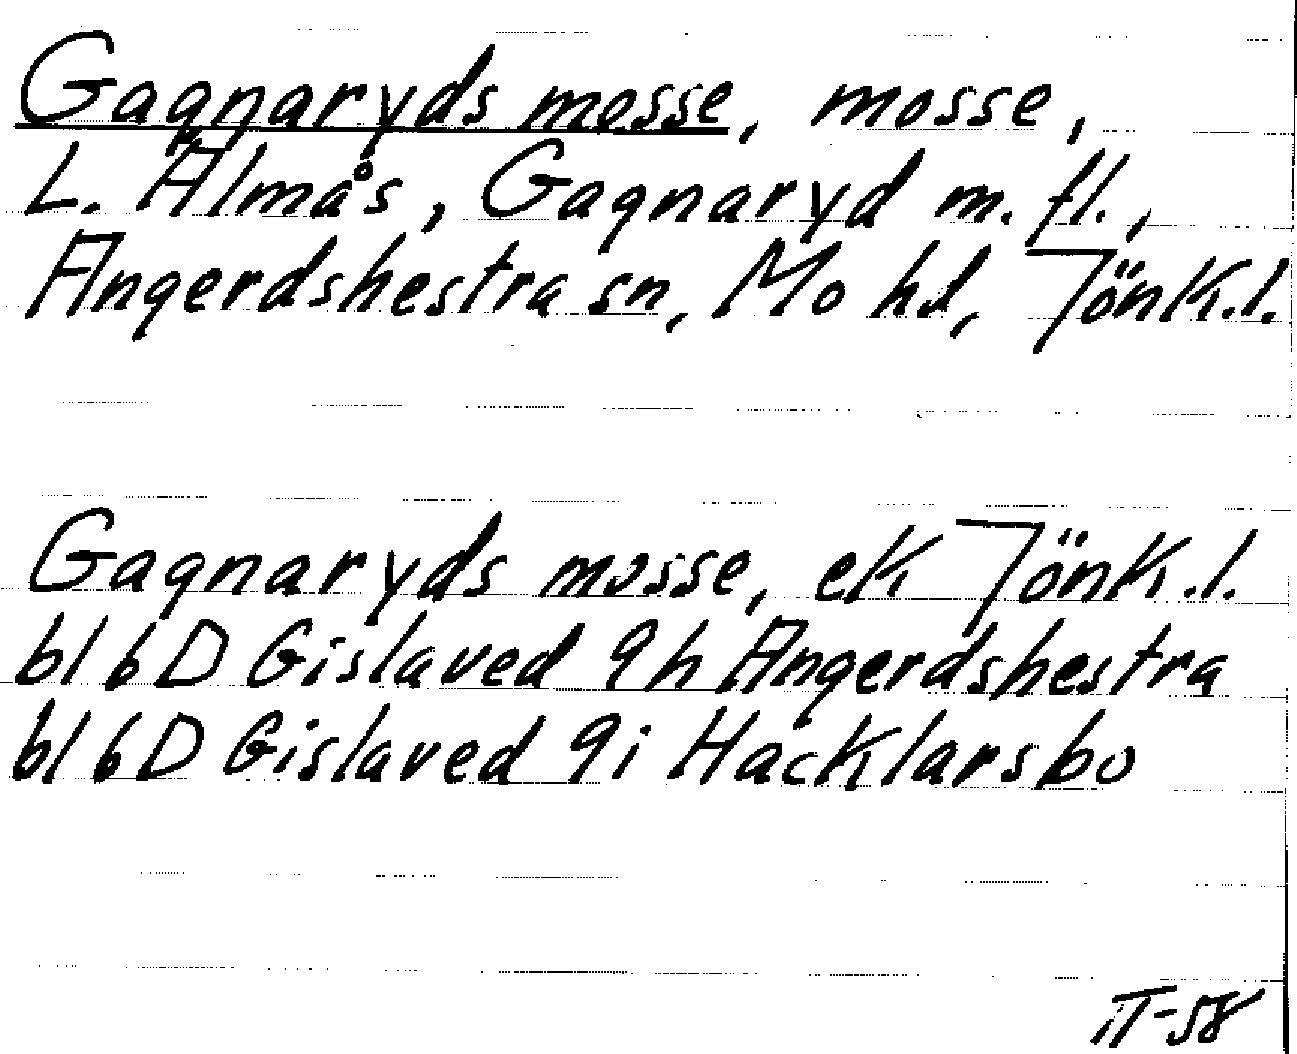 Gagnaryds mosse, mosse,
L. Älmås, Gagnaryd m. fl.,
Angerdshestra sn, Mo hd, Jönk.l.
Gagnaryds mosse, ek Jönk.l.
bl 6D Gislaved 9h Angerdshestra
bl 6D Gislaved 9i Hacklarsbo
IT-58